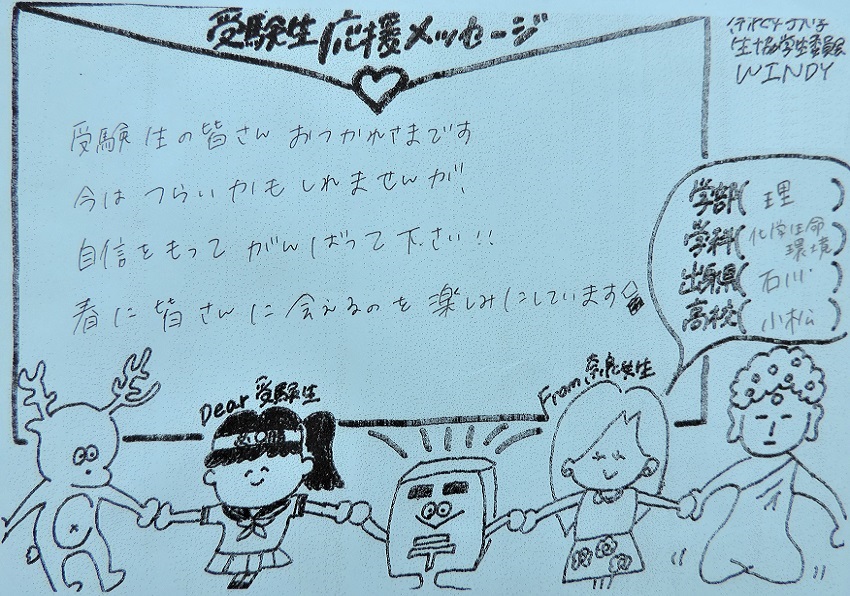 受験生応援メッセージ
生協学生委員会
WINDY
受験生の皆さん おつかれさまです
今は つらいかもしれませんが、
自信をもって がんばって下さい!!
春に 皆さんに 会えるのを 楽しみにしています
学部(理)
学科(化学生命環境)
出身県(石川)
高校(小松)
Dear 受験生
From 奈良女生